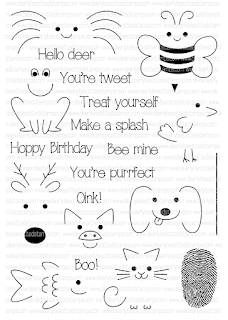 Hello deer
You're tweet
Treat yourself
Make a splash
Happy Birthday
Bee mine
You're purrfect
Oink!
Boo!